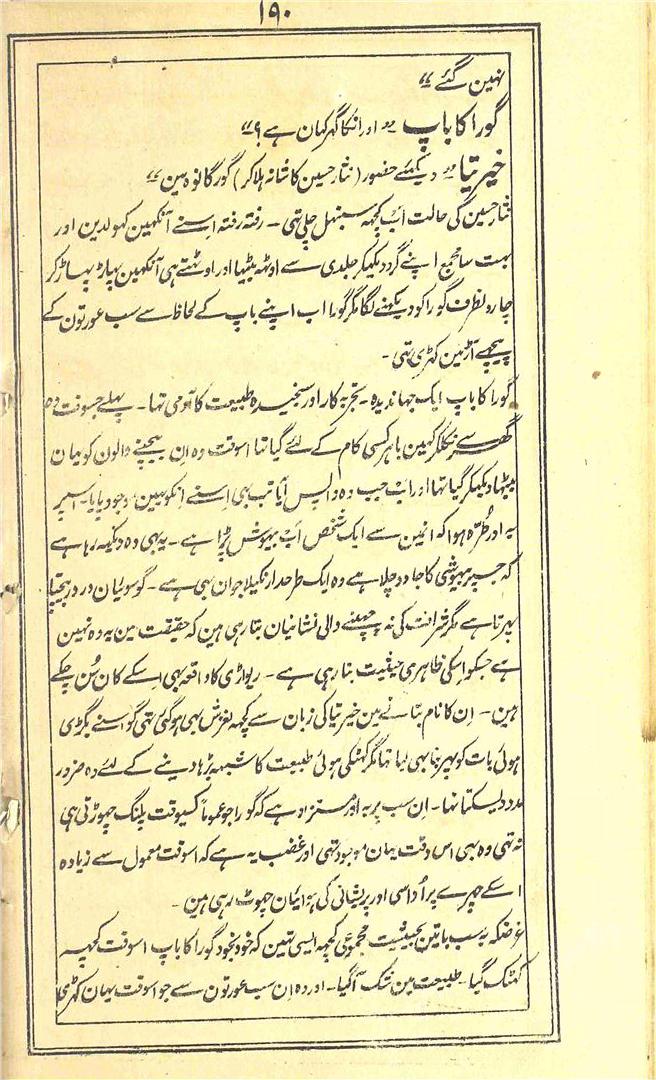 ۱۹۰
نہین گئے ״
گورا کا باپ ״ اور انکا گھر کہان ہے ؟ ״
خیر تیا ״ دیکھئے حضور (نثار حسین کا شانہ ہلا کر) گورگانوہ مین ״
نثار حسین کی حالت اب کچہہ سنبھل چلی تہی ۔ رفتہ رفتہ اسنے آنکہین کہولدین اور
بہت سا مجمع اپنے گرد دیکہکر جلدی سے اوٹھہ بیٹھا اور اوٹہتے ہی آنکہین پہاڑ پہاڑ کر
چارو نطرف گورا کو دیکہنے لگا مگر گورا اب اپنے باپ کے لحاظ سے سب عورتون کے
پیچہے آڑ مین کہڑی تہی ۔
گورا کا باپ ایک جہاندیدہ ۔ تجربہ کار اور سنجیدہ طبیعت کا آدمی تہا ۔ پہلے جسوقت وہ
گھر سے نکلکر کہین باہر کسی کام کے لئے گیا تہا اسوقت وہ ان بیچنے والون کو یہان
بیٹہا دیکہکر گیا تہا اور اب جب وہ واپس آیا تب بہی اسنے انکو یہین موجود پایا ۔ اسپر
یہ اور طرہ ہوا کہ انمین سے ایک شخص اب بیہوش پڑا ہے ۔ یہ بہی وہ دیکہہ رہا ہے
کہ جسپر بیہوشی کا جادو چلا ہے وہ ایک طرحدار رنگیلا جوان بہی ہے ۔ گو سوئیان در در بیچتا
پہرتا ہے مگر شرافت کی نہ چہپنے والی نشانیان بتا رہی ہین کہ حقیقت مین یہ وہ نہین
ہے جسکو اسکی ظاہری حیثیت بنا رہی ہے ۔ ریواڑی کا واقعہ بہی اسکے کان سُن چکے
ہین ۔ ان کا نام بتانے مین خیر تیا کی زبان سے کچہہ لغزش بہی ہو گئی تہی گو اسنے بگڑی
ہوئی بات کو پہر بنا بہی لیا تہا مگر کھٹکی ہوئی طبیعت کا شبہہ بڑہا دینے کے لئے وہ ضرور
مدد دیسکتا تہا ۔ ان سب پر یہ اور مستزاد ہے کہ گورا جو عموماً کسیوقت پلنگ چہوڑتی ہی
نہ تہی وہ بہی اس وقت یہان موجود تہی اور غضب یہ ہے کہ اسوقت معمول سے زیادہ
اسکے چہرے پر اُداسی اور پریشانی کی ہوائیان چہوٹ رہی ہین ۔
غرضکہ یہ سب باتین بحیثیت مجموعی کچہہ ایسی تہین کہ خود بخود گورا کا باپ اسوقت کچہہ
کھٹک گیا ۔ طبیعت مین شک آ گیا ۔ اور وہ ان سب عورتون سے جو اسوقت یہان کہڑی